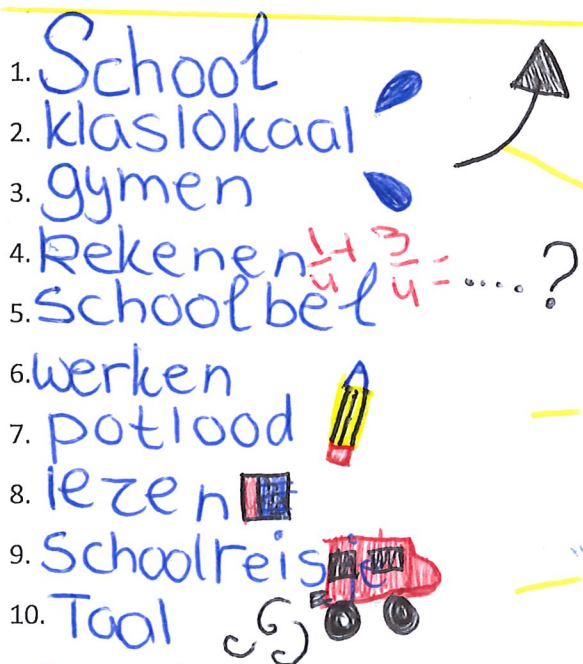 1. School
2. klaslokaal
3. gymen
4. Rekenen 1/4 + 3/4 = ..... ?
5. schoolbel
6. werken
7. potlood
8. lezen
9. Schoolreisje
10. Taal